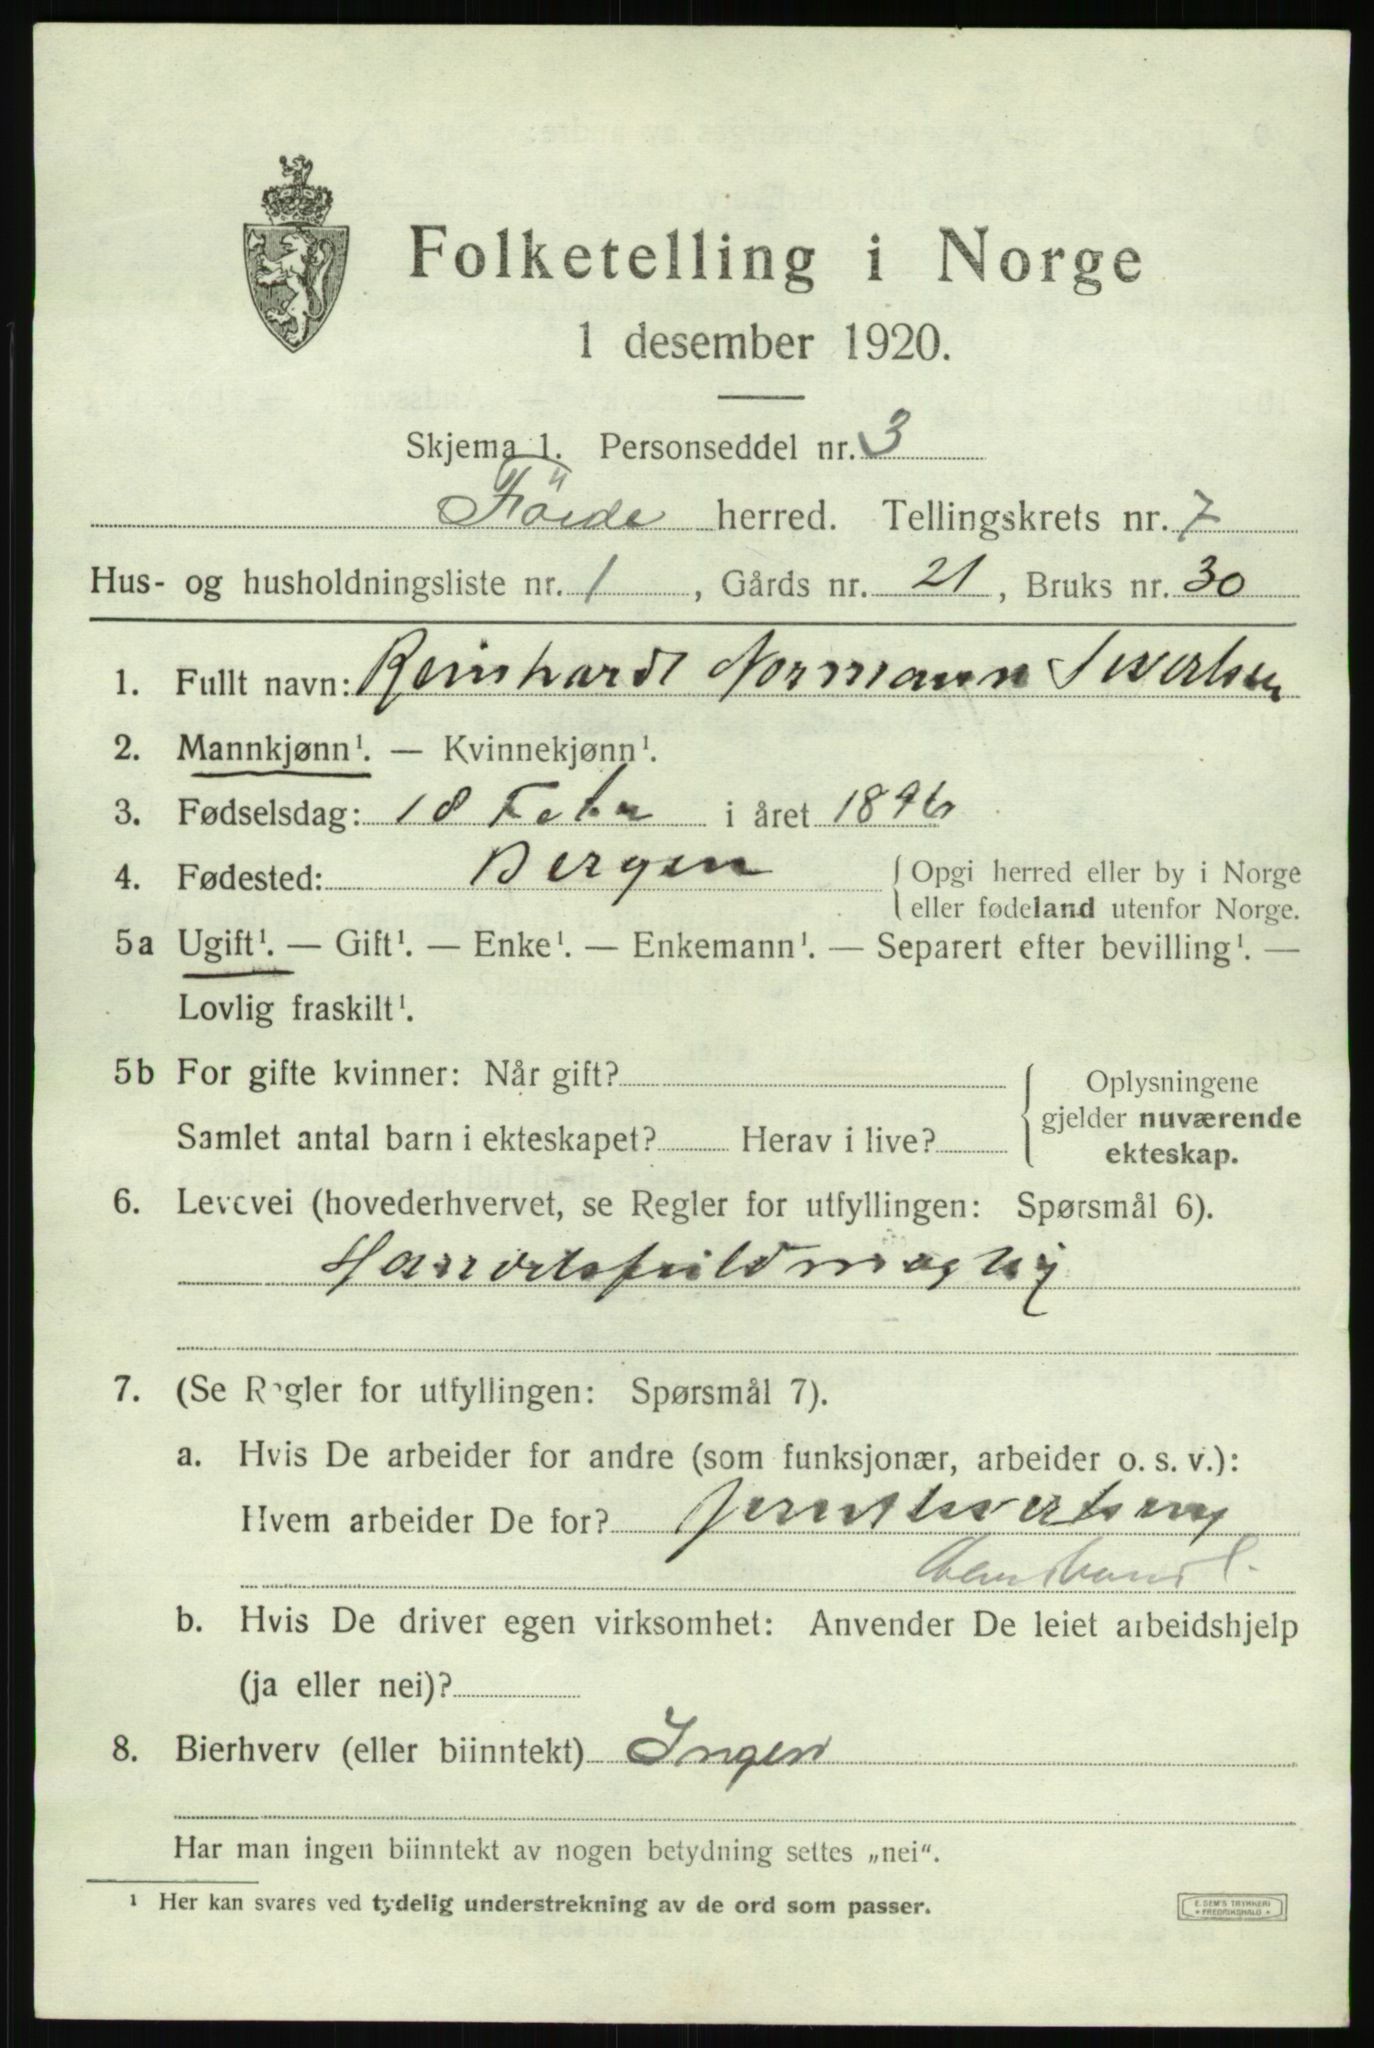 Folketelling i Norge
1 desember 1920.
Skjema 1. Personseddel nr. 3
Förde herred. Tellingskrets nr. 7
Hus- og husholdningsliste nr. 1, Gårds nr. 21, Bruks nr. 30
1. Fullt navn: Reinhardt Normann Sivertsen
2. Mannkjønn¹. — Kvinnekjønn¹.
3. Fødselsdag: 18 Febr i året 1896
4. Fødested: Bergen { Opgi herred eller by i Norge
eller fødeland utenfor Norge.
5a Ugift¹. — Gift¹. — Enke¹. — Enkemann¹. — Separert efter bevilling¹. —
Lovlig fraskilt¹.
5b For gifte kvinner: Når gift?
Samlet antal barn i ekteskapet? Herav i live?
Oplysningene
gjelder nuværende
ekteskap.
6. Levevei (hovederhvervet, se Regler for utfyllingen: Spørsmål 6).
7. (Se Regler for utfyllingen: Spørsmål 7).
a. Hvis De arbeider for andre (som funksjonær, arbeider o. s. v.):
Hvem arbeider De for?
b. Hvis De driver egen virksomhet: Anvender De leiet arbeidshjelp
(ja eller nei)?
8. Bierhverv (eller biinntekt) Ingen
Har man ingen biinntekt av nogen betydning settes „nei“.
¹ Her kan svares ved tydelig understrekning av de ord som passer.
E. SEM'S TRYKKERI
FREDRIKSHALD